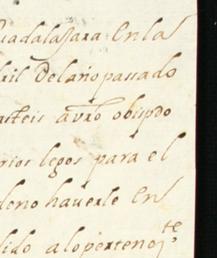 uadalaxara En la
bril del año passado
asteis a vr̃o obispdo
rios legos para el
deno haverle En
dido a lo perteno^te